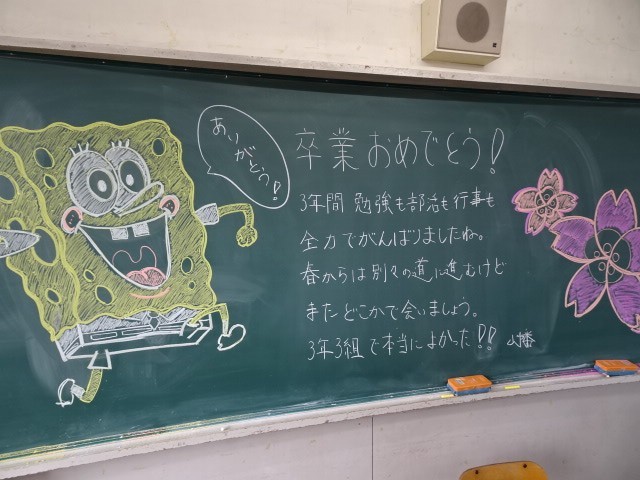 ありがとう!
卒業おめでとう!
3年間 勉強も部活も行事も
全力でがんばりましたね。
春からは別々の道に進むけど
またどこかで会いましょう。
3年3組で本当によかった!!